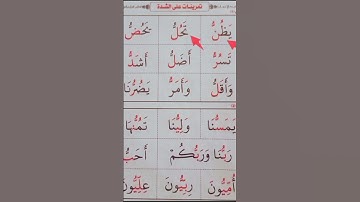 تمرينات على الشدة
يَظُنُّ تَحُلُّ يَحُضُّ
تَسُرُّ أَضَلُّ أَشَدُّ
وَأَقَلُّ وَأَمَرُّ يَضُرُّنَا
يَمَسُّنَا وَلِيُّنَا
رَبُّنَا وَرَبُّكُمْ أَحَبُّ
أُمِّيُّونَ رِبِّيُّونَ عِلِّيُّونَ